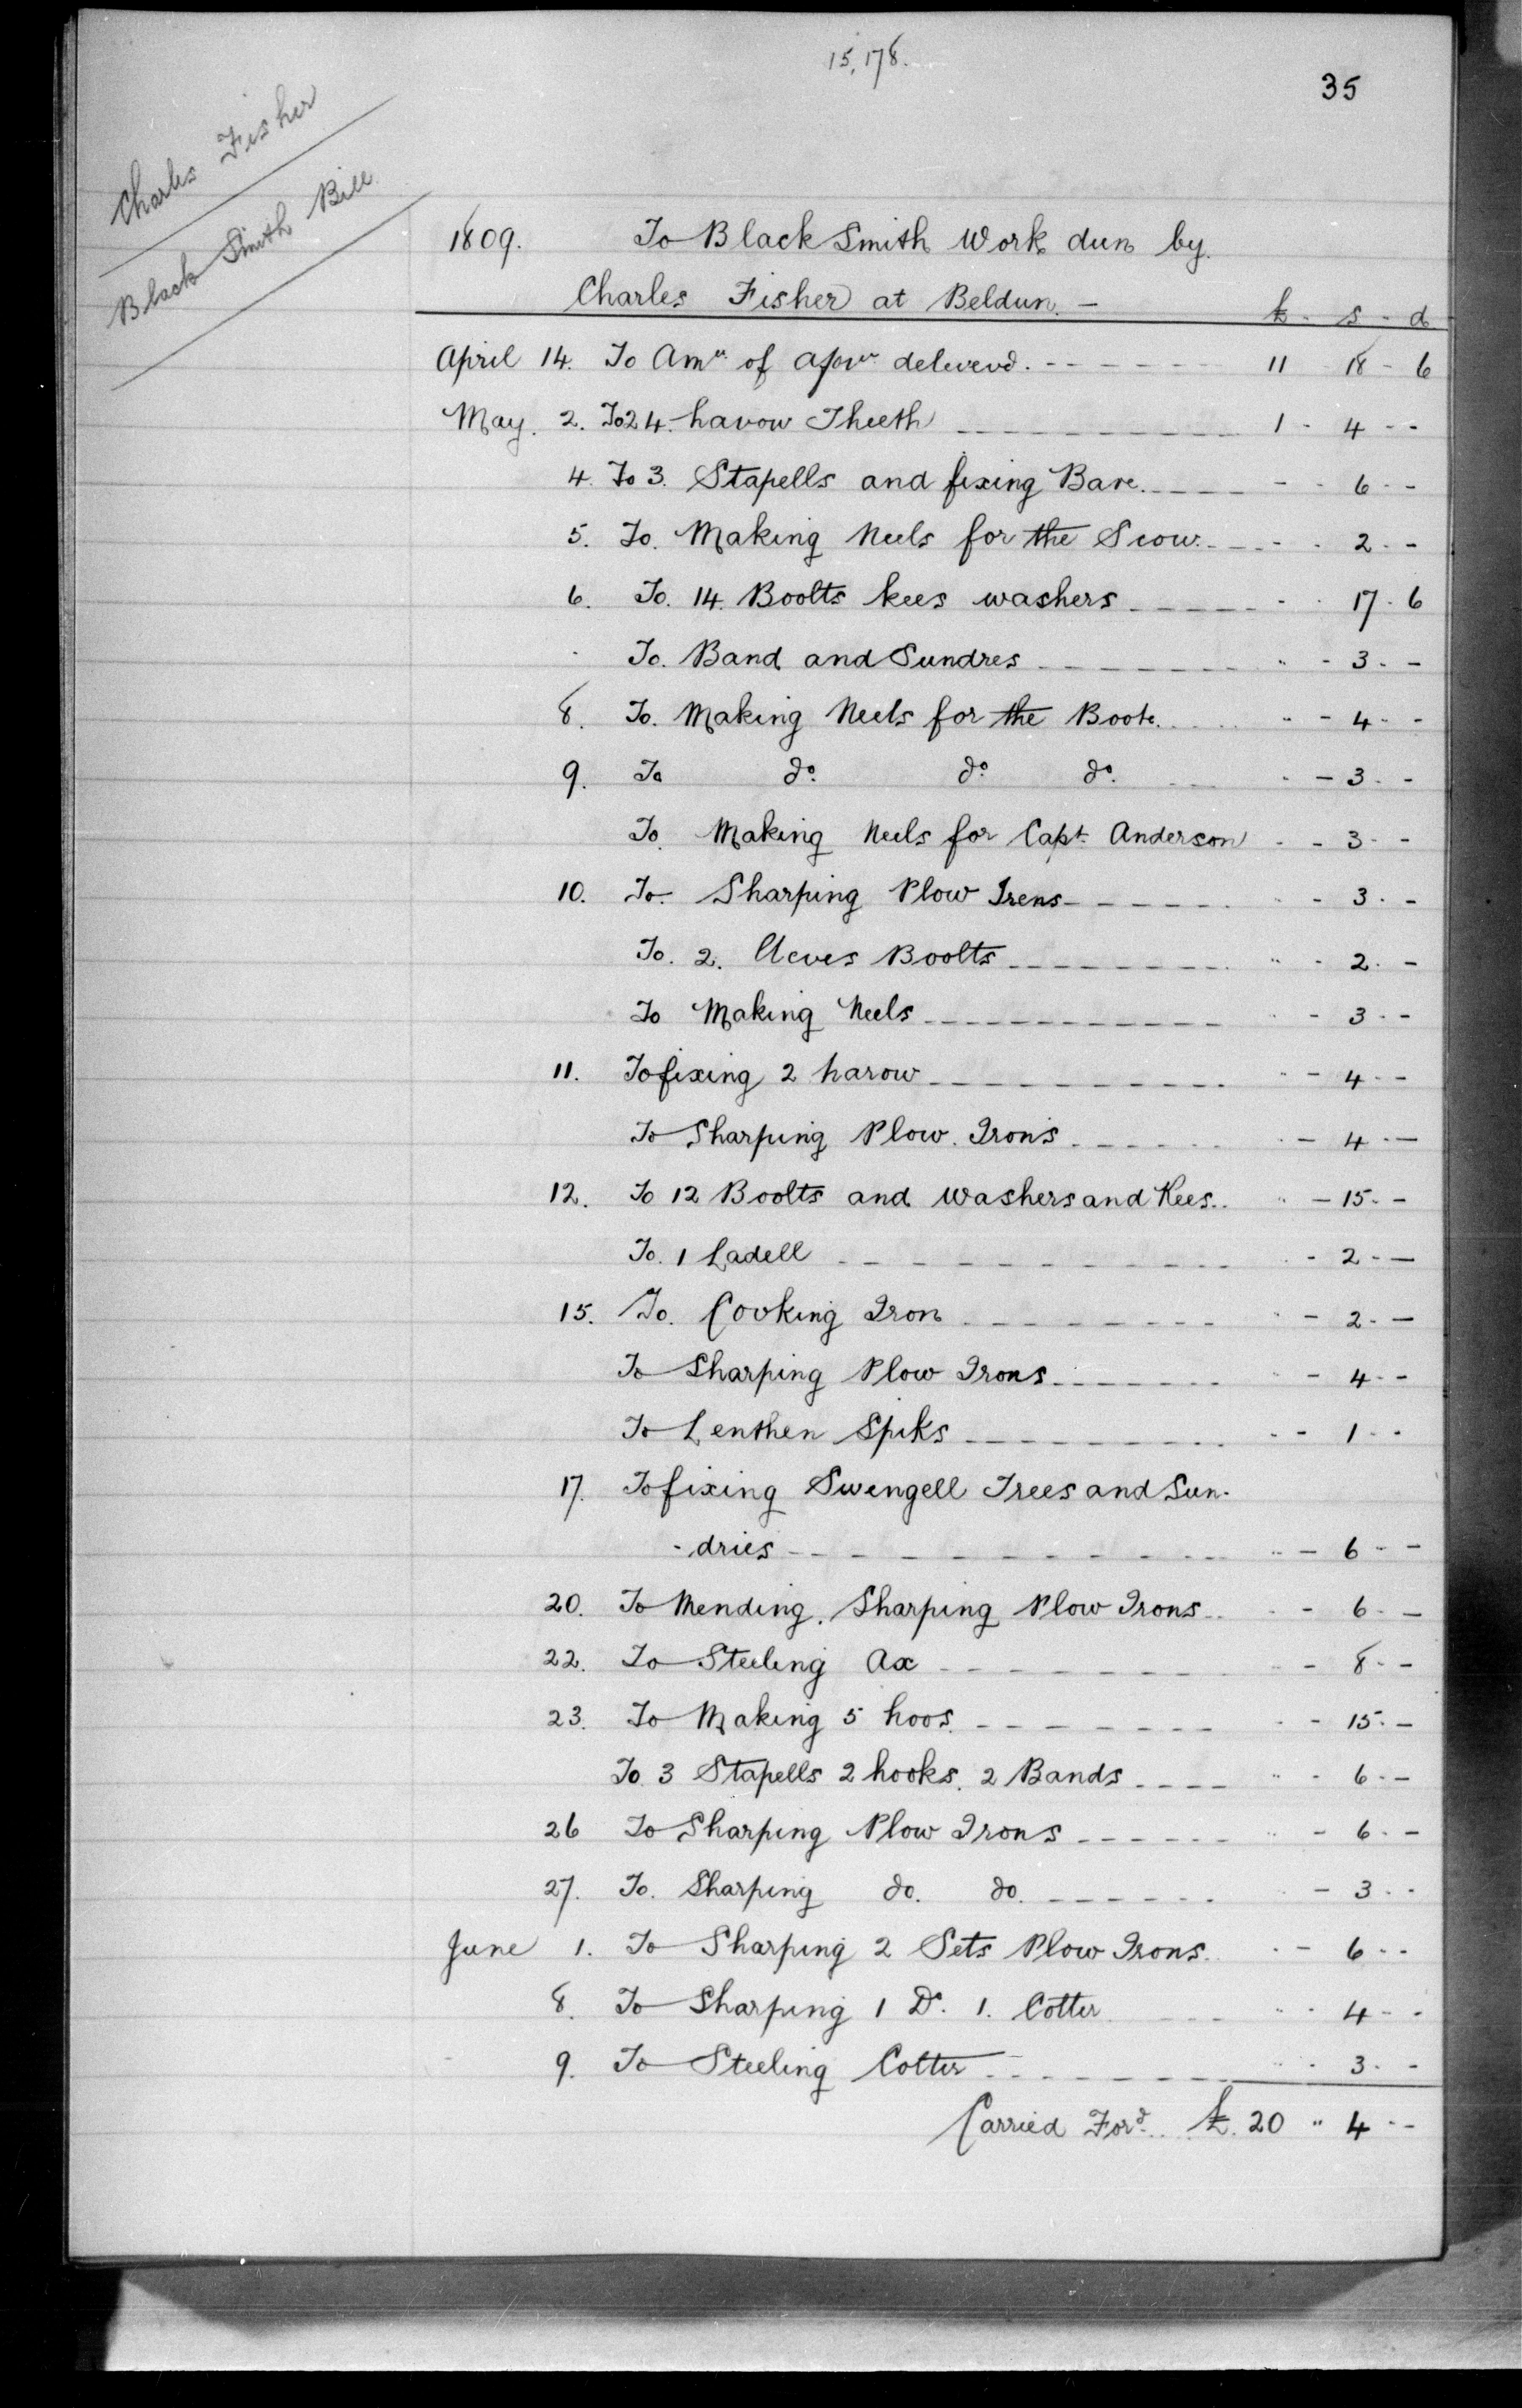 15,178.
35
Charles Fisher
Black Smith Bill
1809. To Black Smith Work dun by.
Charles Fisher at Beldun. -
£ - s - d
April 14. To Am.. of delivend. 11 18 - 6
May. 2. To 24 harow Theeth 1 - 4 - -
4. To 3. Stapells and fixing Bare. - - 6 - -
5. To. Making Neels for the Scow. - - 2 - -
6. To. 14. Boolts kees washers - - 17 - 6
To. Band and Sundres " - 3 - -
8. To. Making Neels for the Boote. " - 4 - -
9. To do. do. do. - - 3 - -
To. Making Neels for Capt. Anderson - - 3 - -
10. To. Sharping Plow Irens - - 3 - -
To. 2. Boolts " - 2 - -
To Making Neels - - 3 - -
11. To fixing 2 harow " - 4 - -
To Sharping Plow. Irons - - 4 - -
12. To 12 Boolts and washers and Kees. " - 15 - -
To. 1 Ladell - - 2 - -
15. To. Cooking Iron " - 2 - -
To Sharping Plow Irons " - 4 - -
To Lenthen Spiks - - 1 - -
17. To fixing Swengell Trees and Sun-
-dries " - 6 - -
20. To Mending. Sharping Plow Irons - - 6 - -
22. To Steeling Ax - - 8 - -
23. To Making 5 hoos. - - 15 - -
To. 3 Stapells 2 hooks. 2 Bands " - 6 - -
26 To Sharping Plow Irons " - 6 - -
27. To. Sharping do. do. - - 3 - -
June 1. To Sharping 2 Sets Plow Irons. - - 6 - -
8. To Sharping 1 Do. 1. Cotter - - 4 - -
9. To Steeling Cotter - - 3 - -
Carried Ford. £. 20 " 4 - -